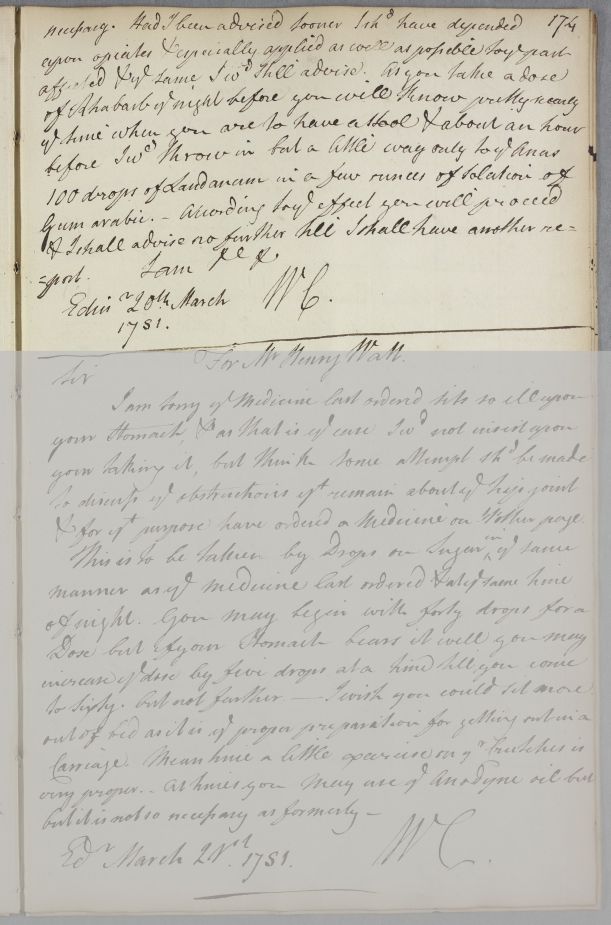 174
necessary. Had I been advised sooner I shd have depended
upon opiates & especially applied as well as possible to ye part
affected & ye same I wd still advise. As you take a dose
of Rhubarb ye night before you will know pretty nearly
ye time when you are to have a stool & about an hour
before I wd throw in but a little way only to ye Anus
100 drops of Laudanum in a few ounces of Solution of
Gum arabic. - According to ye effect you will proceed
& I shall advise no further till I shall have another re=
=port. I am
Edinr 20th March WC.
1781.
For Mr Henry Watt.
Sir
I am sorry ye Medicine last ordered sits so ill upon
your Stomach, & as that is ye case I wd not insist upon
your taking it, but think some attempt shd be made
to discuss ye obstructions yt remain about ye hip joint
& for yt purpose have ordered a Medicine on page
This is to be taken by Drops on Sugar in ye same
manner as ye medicine last ordered & at ye same time
of night. You may begin with forty drops for a
Dose but if your Stomach bears it well you may
increase ye dose by five drops at a time till you come
to Sixty. but not further — I wish you could sit more
out of bed as it is ye proper preparation for getting out in a
Carriage. Meantime a little exercise on yr Crutches is
very proper. - At times you may use ye Anodyne oil but
but it is not so necessary as formerly -
Edr March 21st. 1781. WC.